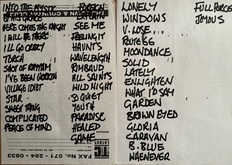 INTO THE MYSTIC
HERE COMES THE NIGHT
I WILL BE THERE
I'LL GO CRAZY
I'VE BEEN GORGON
VILLAGE IDIOT
STAR
SWEET THING
COMPLICATED
PEACE OF MIND
FOREIGN
SEE ME
FEELING IT
HAUNTS
WAVELENGTH
RIMBAUD
ALL SAINTS
WILD NIGHT
SO QUIET
YOUTH
PARADISE
HEALED
GAME
FAX No. 071 - 284 - 0833
LONELY
WINDOWS
V. LOSE...
ROUTE 66
MOONDANCE
SOLID
LATELY
ENLIGHTEN
WHAT I'D SAY
GARDEN
BROWN EYED
GLORIA
CARAVAN
B. BLUE
WHENEVER
FULL FORCE